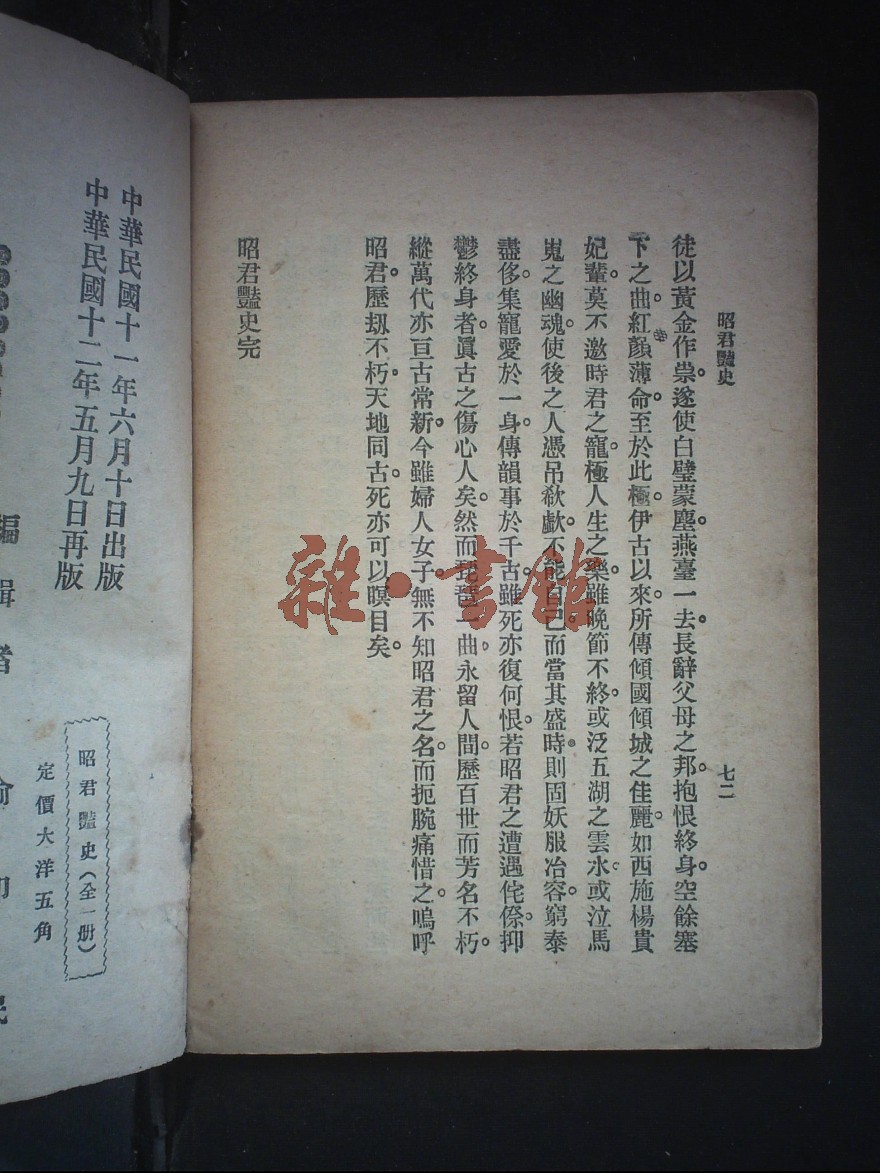 昭君豔史
七二
徒以黃金作祟。遂使白璧蒙塵。燕臺一去。長辭父母之邦。抱恨終身。空餘塞
下之曲。紅顏薄命。至於此極。伊古以來。所傳傾國傾城之佳麗。如西施楊貴
妃輩。莫不邀時君之寵。極人生之樂。雖晚節不終。或泛五湖之雲水。或泣馬
嵬之幽魂。使後之人憑吊欷歔。不能自已。而當其盛時。則固妖服冶容。窮泰
盡侈。集寵愛於一身。傳韻事於千古。雖死亦復何恨。若昭君之遭遇侘傺。抑
鬱終身者。眞古之傷心人矣。然而琵琶一曲。永留人間。歷百世而芳名不朽。
縱萬代亦亘古常新。今雖婦人女子。無不知昭君之名。而扼腕痛惜之。嗚呼
昭君。歷刼不朽。天地同古。死亦可以瞑目矣。
昭君豔史完
中華民國十一年六月十日出版
中華民國十二年五月九日再版
昭君豔史(全一册)
定價大洋五角
編輯者
雜·書館